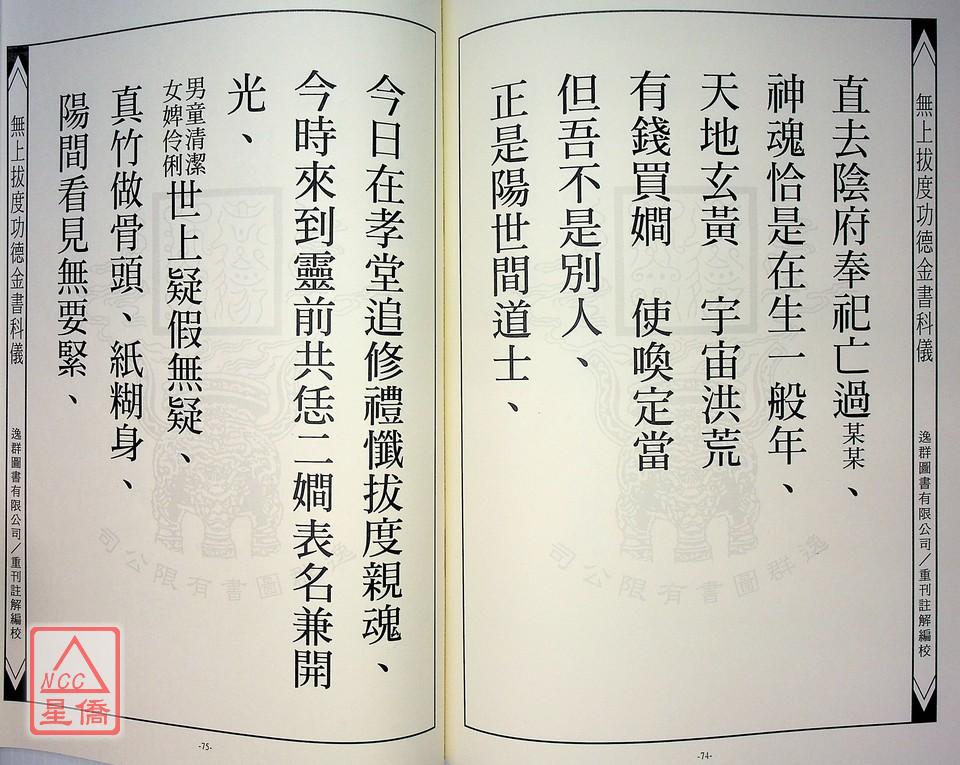 無上拔度功德金書科儀
逸群圖書有限公司／重刊註解編校
直去陰府奉祀亡過某某、
神魂恰是在生一般年、
天地玄黃　宇宙洪荒
有錢買嫺　使喚定當
但吾不是別人、
正是陽世間道士、
-74-
今日在孝堂追修禮懺拔度親魂、
今時來到靈前共恁二嫺表名兼開
光、
男童清潔
女婢伶俐
世上疑假無疑、
真竹做骨頭、紙糊身、
陽間看見無要緊、
無上拔度功德金書科儀
逸群圖書有限公司／重刊註解編校
-75-
逸群圖書有限公司
NCC
星僑